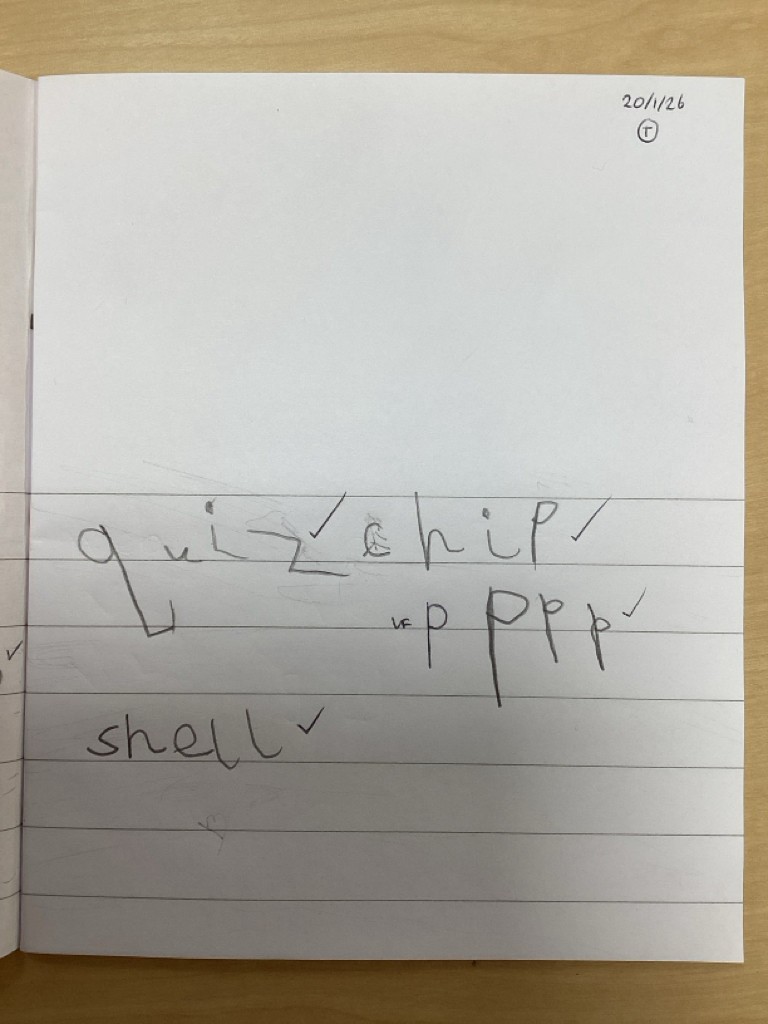 20/1/26
T
quiz ✓ chip ✓
VF p p p p ✓
shell ✓